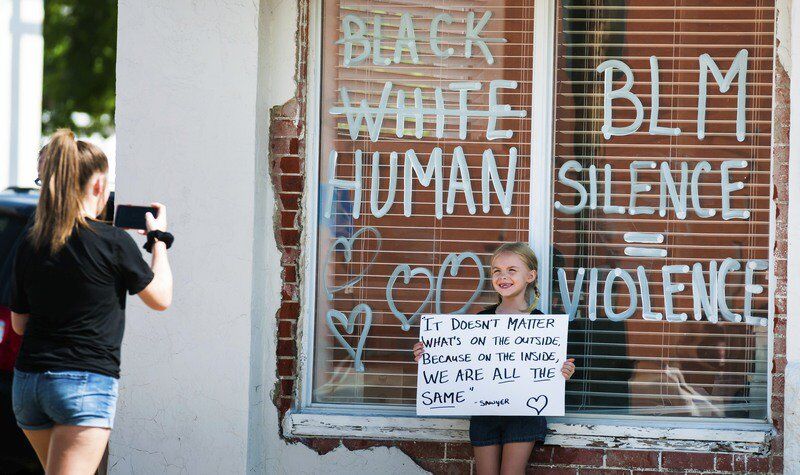 BLACK
WHITE
HUMAN
BLM
SILENCE
=
VIOLENCE
"IT DOESN'T MATTER
WHAT'S ON THE OUTSIDE,
BECAUSE ON THE INSIDE,
WE ARE ALL THE
SAME" -SAWYER